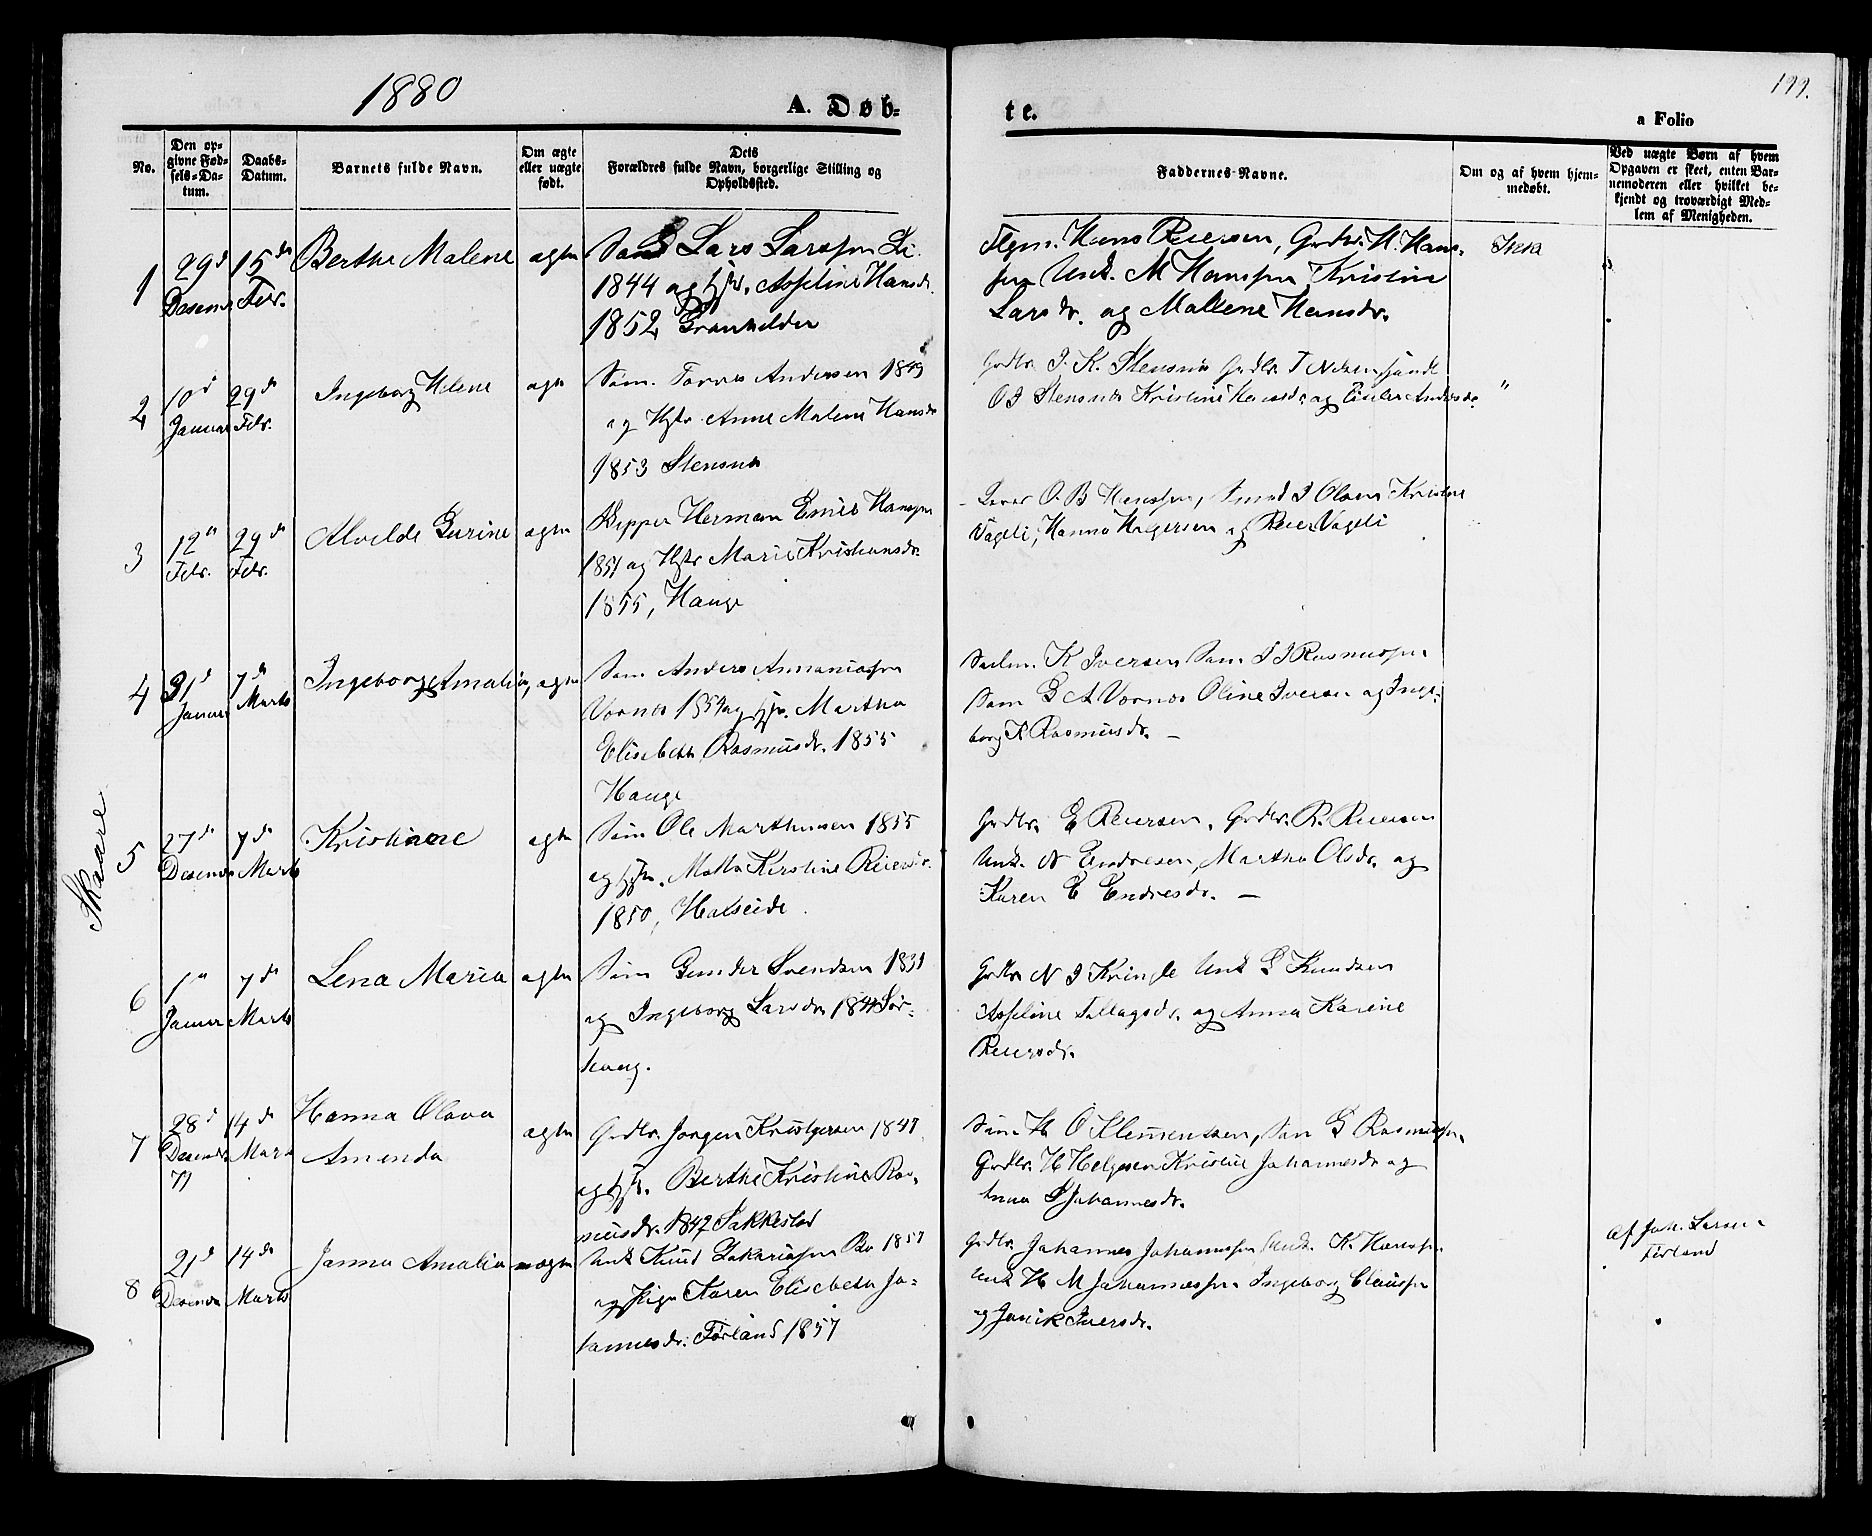 1880
A. Døb=
te.
199.
a Folio
No.
Den op-
givne Fød-
sels-Da-
tum.
Daabs-
Datum.
Barnets fulde Navn.
Om ægte
eller uægte
født.
Dets
Forældres fulde Navn, borgerlige Stilling og
Opholdssted.
Faddernes Navne.
Om og af hvem hjem-
medøbt.
Ved uægte Børn af hvem
Opgaven er skeet, enten Bar-
nemoderen eller hvilket be-
kjendt og troværdigt Med-
lem af Menigheden.
Skaare
1
29d
Desembr
15de
Febr.
Berthe Malene
ægte
Lars Larssen
1844 og Asseline Hansdr.
1852
Hans Reiersen, Grdbr. H. Hans-
sen Unk. M Hanssen Kristine
Larsdr. og Mallene Hansdr.
2
10d
Januar
29de
Febr.
Ingeborg Helene
ægte
Søm. Tornes Andersen 1849
og Hstr. Anne Malene Hansdr
1853 Stensnes
Grdbr. J. K. Stensnes Grdbr.
O J Stensnes Kristine Hansdr. og Andersdr.
"
3
12te
Febr.
29de
Febr.
Alvilde Gurine
ægte
Skipper Herman Emil Hanssen
1851 og Hstr Marie Kristiansdr.
1855, Hauge
O. B Hanssen, J Olsen Kristine
Vageli, Hanna Holgersen og Reier Vageli
4
31d
Januar
7de
Marts
Ingeborg Amalia,
ægte
Søm Anders Ananiassen
Vornes 1854 og Hstr. Martha
Elisabeth Rasmusdr. 1855
Hauge
K Iversen Søm J J Rasmussen
Søm G A Vornes Oline Iversen og Inge-
borg K Rasmusdr. —
5
27de
Desembr
7de
Marts
Kristiane
ægte
Søm Ole Marthinsen 1855
og Hstr. Malla Kirstine Reiersdr.
1850, Halseide
Grdbr. E Reiersen, Grdbr. R. Reiersen
Unk. N Endresen, Martha Olsdr. og
Karen E Endresdr. —
6
1te
Januar
7de
Marts
Lena Maria
ægte
Søm Gunder Svendsen 1831
og Ingeborg Larsdr 184 Sør-
haug.
Grdbr N J Kringle Unk L Knudsen
Asseline Tollagsdr. og Anna Karine
Reiersdr.
7
28d
Desembr
79
14de
Marts
Hanna Olava
Amanda
ægte
Grdbr. Jørgen Kristofersen 1847
og Hstr. Berthe Kristine Ras-
musdr. 1847 Sakkestad
Søm H O Klemmentsen, Søm G Rasmussen
Grdbr. H Helgesen Kristine Johannesdr og
Anna S Johannesdr.
8
21d
Desembr
14de
Marts
Janna Amalia
uægte
Unk Knud Zakariassen Bø 1857
og Pige Karen Elisabeth Jo-
hannesdr. Førland 1857
Grdbr. Johannes Johannessen Unk. K. Hanssen
Unk H M Johannessen Ingeborg Claussen
og Janik Iversdr.
af Joh. Larsen
Førland